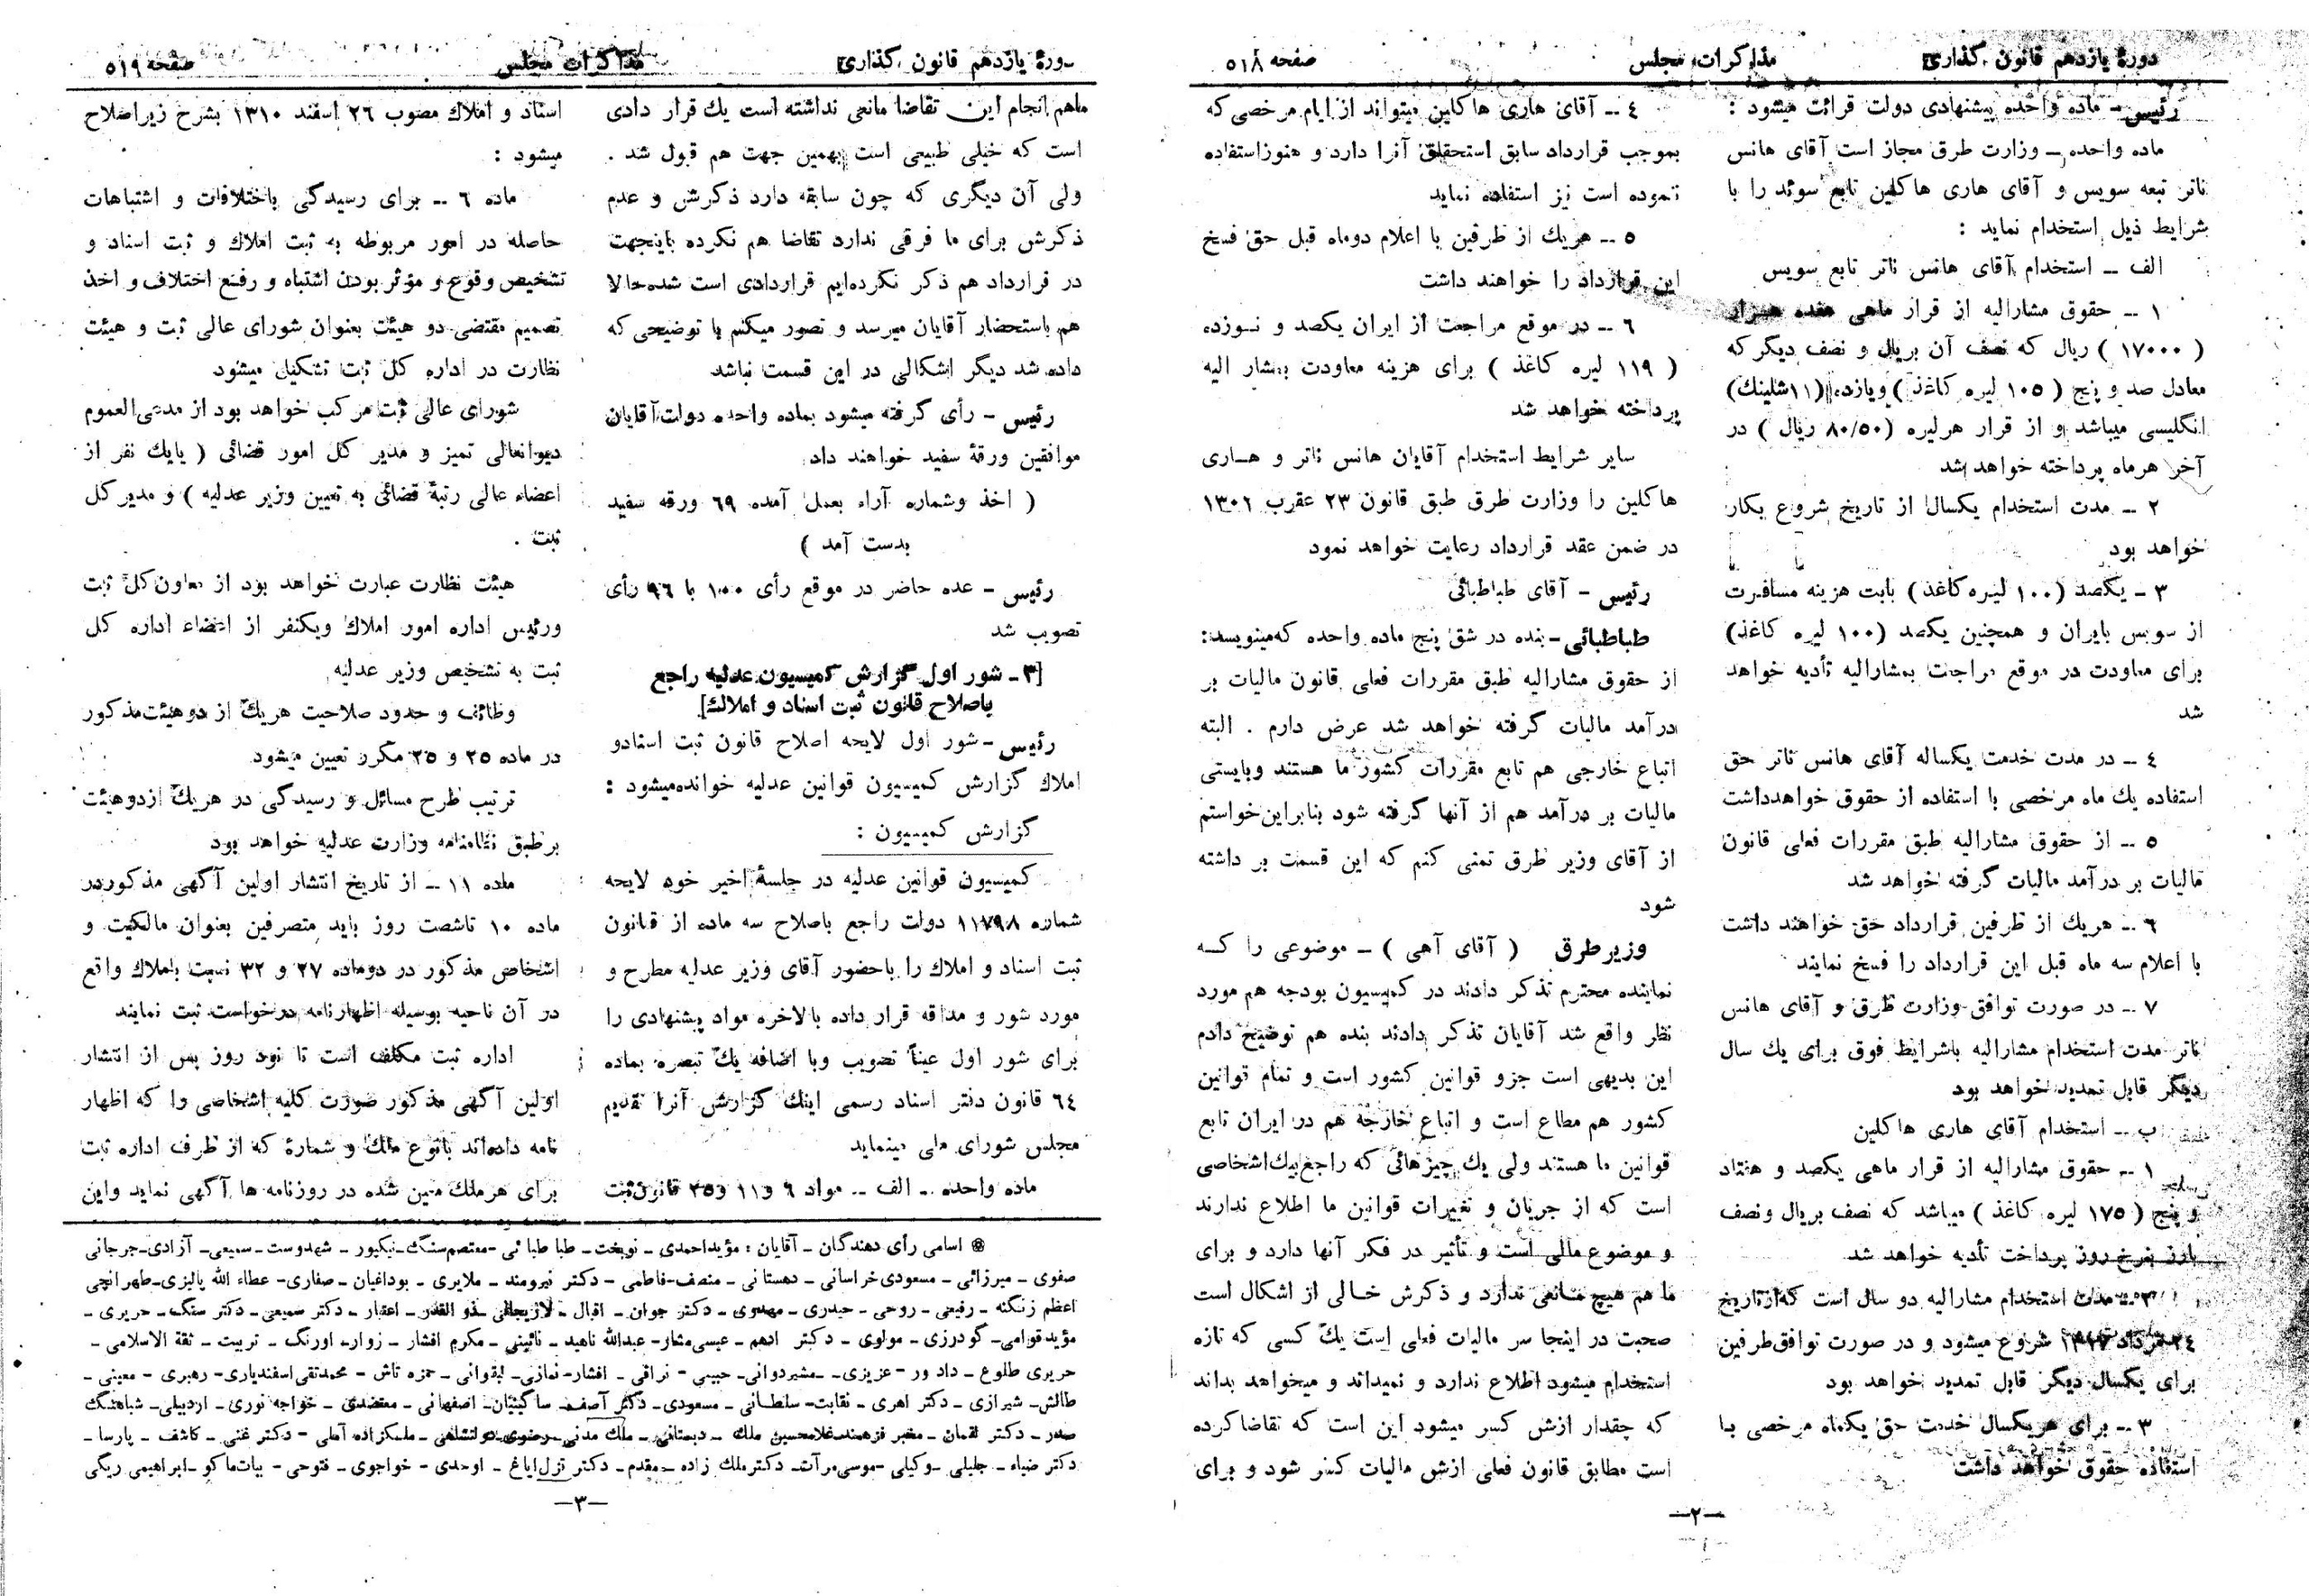 دورهٔ یازدهم قانون گذاری
مذاکرات مجلس
صفحه ۵۱۸
رئیس - ماده واحده پیشنهادی دولت قرائت میشود :
ماده واحده - وزارت طرق مجاز است آقای هانس
ناتر تبعه سویس و آقای هاری هاکلین تابع سوئد را با
شرایط ذیل استخدام نماید :
الف - استخدام آقای هانس ناتر تابع سویس
۱ - حقوق مشارالیه از قرار ماهی هفده هزار
( ۱۷۰۰۰ ) ریال که نصف آن بریال و نصف دیگر که
معادل صد و پنج ( ۱۰۵ لیره کاغذ ) و یازده (۱۱ شلینك)
انگلیسی میباشد و از قرار هرلیره (۸۰/۵۰ ریال ) در
آخر هرماه پرداخته خواهد شد
۲ - مدت استخدام یکسال از تاریخ شروع بکار
خواهد بود
۳ - یکصد (۱۰۰ لیره کاغذ) بابت هزینه مسافرت
از سویس بایران و همچنین یکصد (۱۰۰ لیره کاغذ)
برای معاودت در موقع مراجعت بمشارالیه تأدیه خواهد
شد
٤ - در مدت خدمت یکساله آقای هانس ناتر حق
استفاده یك ماه مرخصی با استفاده از حقوق خواهد داشت
۵ - از حقوق مشارالیه طبق مقررات فعلی قانون
مالیات بر درآمد مالیات گرفته خواهد شد
٦ - هریك از طرفین قرارداد حق خواهند داشت
با اعلام سه ماه قبل این قرارداد را فسخ نمایند
۷ - در صورت توافق وزارت طرق و آقای هانس
ناتر مدت استخدام مشارالیه باشرایط فوق برای یك سال
دیگر قابل تمدید خواهد بود
ب - استخدام آقای هاری هاکلین
۱ - حقوق مشارالیه از قرار ماهی یکصد و هفتاد
و پنج ( ۱۷۵ لیره کاغذ ) میباشد که نصف بریال و نصف
بارز بنرخ روز پرداخت تأدیه خواهد شد
۲ - مدت استخدام مشارالیه دو سال است که از تاریخ
۲٤ خرداد شروع میشود و در صورت توافق طرفین
برای یکسال دیگر قابل تمدید خواهد بود
۳ - برای هر یکسال خدمت حق یکماه مرخصی با
استفاده حقوق خواهد داشت
٤ - آقای هاری هاکلین میتواند از ایام مرخصی که
بموجب قرارداد سابق استحقاق آنرا دارد و هنوز استفاده
ننموده است نیز استفاده نماید
۵ - هریك از طرفین با اعلام دوماه قبل حق فسخ
این قرارداد را خواهند داشت
٦ - در موقع مراجعت از ایران یکصد و نوزده
( ۱۱۹ لیره کاغذ ) برای هزینه معاودت بمشار الیه
پرداخته خواهد شد
سایر شرایط استخدام آقایان هانس ناتر و هاری
هاکلین را وزارت طرق طبق قانون ۲۳ عقرب ۱۳۰۱
در ضمن عقد قرارداد رعایت خواهد نمود
رئیس - آقای طباطبائی
طباطبائی - بنده در شق پنج ماده واحده که مینویسد:
از حقوق مشارالیه طبق مقررات فعلی قانون مالیات بر
درآمد مالیات گرفته خواهد شد عرض دارم . البته
اتباع خارجی هم تابع مقررات کشور ما هستند و بایستی
مالیات بر درآمد هم از آنها گرفته شود بنابراین خواستم
از آقای وزیر طرق تمنی کنم که این قسمت بر داشته
شود
وزیر طرق ( آقای آهی ) - موضوعی را که
نماینده محترم تذکر دادند در کمیسیون بودجه هم مورد
نظر واقع شد آقایان تذکر دادند بنده هم توضیح دادم
این بدیهی است جزو قوانین کشور است و تمام قوانین
کشور هم مطاع است و اتباع خارجه هم در ایران تابع
قوانین ما هستند ولی یك چیزهائی که راجع بیك اشخاصی
است که از جریان و تغییرات قوانین ما اطلاع ندارند
و موضوع مالی است و تأثیر در فکر آنها دارد و برای
ما هم هیچ مانعی ندارد و ذکرش خالی از اشکال است
صحبت در اینجا سر مالیات فعلی است یك کسی که تازه
استخدام میشود اطلاع ندارد و نمیداند و میخواهد بداند
که چقدار ازش کسر میشود این است که تقاضا کرده
است مطابق قانون فعلی ازش مالیات کسر شود و برای
-۲-
دورهٔ یازدهم قانون گذاری
مذاکرات مجلس
صفحه ۵۱۹
ماهم انجام این تقاضا مانعی نداشته است یك قرار دادی
است که خیلی طبیعی است بهمین جهت هم قبول شد .
ولی آن دیگری که چون سابقه دارد ذکرش و عدم
ذکرش برای ما فرقی ندارد تقاضا هم نکرده باینجهت
در قرارداد هم ذکر نکرده‌ایم قراردادی است شده حالا
هم باستحضار آقایان میرسد و تصور میکنم با توضیحی که
داده شد دیگر اشکالی در این قسمت نباشد
رئیس - رأی گرفته میشود بماده واحده دولت آقایان
موافقین ورقهٔ سفید خواهند داد
( اخذ و شماره آراء بعمل آمده ٦۹ ورقه سفید
بدست آمد )
رئیس - عده حاضر در موقع رأی ۱۰۰ با ۹٦ رأی
تصویب شد
[۳ - شور اول گزارش کمیسیون عدلیه راجع
باصلاح قانون ثبت اسناد و املاك]
رئیس - شور اول لایحه اصلاح قانون ثبت اسناد و
املاك گزارش کمیسیون قوانین عدلیه خوانده میشود :
گزارش کمیسیون :
کمیسیون قوانین عدلیه در جلسهٔ اخیر خود لایحه
شماره ۱۱۷۹۸ دولت راجع باصلاح سه ماده از قانون
ثبت اسناد و املاك را باحضور آقای وزیر عدلیه مطرح و
مورد شور و مداقه قرار داده بالاخره مواد پیشنهادی را
برای شور اول عیناً تصویب و با اضافه یك تبصره بماده
٦٤ قانون دفتر اسناد رسمی اینك گزارش آنرا تقدیم
مجلس شورای ملی مینماید
ماده واحده - الف - مواد ٦ و ۱۱ و ۲۵ قانون ثبت
اسناد و املاك مصوب ۲٦ اسفند ۱۳۱۰ بشرح زیر اصلاح
میشود :
ماده ٦ - برای رسیدگی باختلافات و اشتباهات
حاصله در امور مربوطه به ثبت املاك و ثبت اسناد و
تشخیص وقوع و مؤثر بودن اشتباه و رفع اختلاف و اخذ
تصمیم مقتضی دو هیئت بعنوان شورای عالی ثبت و هیئت
نظارت در اداره کل ثبت تشکیل میشود
شورای عالی ثبت مرکب خواهد بود از مدعی العموم
دیوانعالی تمیز و مدیر کل امور قضائی ( یا یك نفر از
اعضاء عالی رتبهٔ قضائی به تعیین وزیر عدلیه ) و مدیر کل
ثبت .
هیئت نظارت عبارت خواهد بود از معاون کل ثبت
و رئیس اداره امور املاك و یکنفر از اعضاء اداره کل
ثبت به تشخیص وزیر عدلیه
وظائف و حدود صلاحیت هریك از دو هیئت مذکور
در ماده ۲۵ و ۲۵ مکرر تعیین میشود
ترتیب طرح مسائل و رسیدگی در هریك از دو هیئت
بر طبق نظامنامه وزارت عدلیه خواهد بود
ماده ۱۱ - از تاریخ انتشار اولین آگهی مذکور در
ماده ۱۰ تا شصت روز باید متصرفین بعنوان مالکیت و
اشخاص مذکور در دو ماده ۲۷ و ۳۲ نسبت باملاك واقع
در آن ناحیه بوسیله اظهارنامه درخواست ثبت نمایند
اداره ثبت مکلف است تا نود روز پس از انتشار
اولین آگهی مذکور صورت کلیه اشخاصی را که اظهار
نامه داده‌اند بانوع ملك و شمارهٔ که از طرف اداره ثبت
برای هر ملك معین شده در روزنامه ها آگهی نماید و این
⊛ اسامی رأی دهندگان - آقایان : مؤید احمدی - نوبخت - طباطبائی - معتصم سنگ - نیکپور - شهدوست - سمیعی - آزادی - جرجانی
صفوی - میرزائی - مسعودی خراسانی - دهستانی - منصف - فاطمی - دکتر نیرومند - ملایری - بوداغیان - صفاری - عطاء الله پالیزی - طهرانچی
اعظم زنگنه - رفیعی - روحی - حیدری - مهدوی - دکتر جوان - اقبال - لاریجانی - ذوالقدر - اعتبار - دکتر سمیعی - دکتر سنگ - حریری -
مؤید قوامی - گودرزی - مولوی - دکتر ادهم - عیسی مشار - عبدالله ناهید - نائینی - مکرم افشار - زوار - اورنگ - تربیت - ثقة الاسلامی -
حریری طلوع - دادور - عزیزی - مشیر دوانی - حبیبی - نراقی - افشار - نمازی - لیقوانی - حمزه تاش - محمدتقی اسفندیاری - رهبری - معینی -
طالش - شیرازی - دکتر اهری - نقابت - سلطانی - مسعودی - دکتر آصف - ساگینیان - اصفهانی - معتضدی - خواجه نوری - اردبیلی - شباهنگ
صدر - دکتر لقمان - مخبر فرهمند - غلامحسین ملك - دبستانی - ملك مدنی - رضوی - دولتشاهی - ملکزاده آملی - دکتر غنی - کاشف - پارسا -
دکتر ضیاء - جلیلی - وکیلی - موسی مرآت - دکتر ملك زاده - مقدم - دکتر قزل ایاغ - اوحدی - خواجوی - فتوحی - بیات ماکو - ابراهیمی ریگی
-۳-